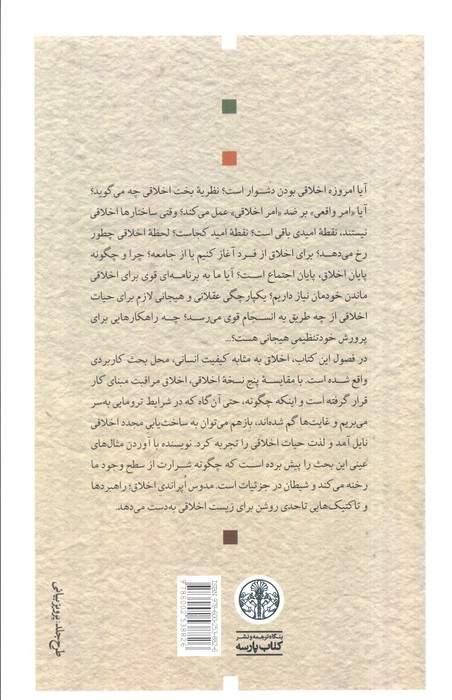 آیا امروزه اخلاقی بودن دشوار است؟ نظریهٔ بخت اخلاقی چه می‌گوید؟
آیا «امر واقعی» بر ضد «امر اخلاقی» عمل می‌کند؟ وقتی ساختارها اخلاقی
نیستند، نقطهٔ امیدی باقی است؟ نقطهٔ امید کجاست؟ لحظهٔ اخلاقی چطور
رخ می‌دهد؟ برای اخلاق از فرد آغاز کنیم یا از جامعه؟ چرا و چگونه
پایان اخلاق، پایان اجتماع است؟ آیا ما به برنامه‌ای قوی برای اخلاقی
ماندن خودمان نیاز داریم؟ یکپارچگی عقلانی و هیجانی لازم برای حیات
اخلاقی از چه طریق به انسجام قوی می‌رسد؟ چه راهکارهایی برای
پرورش خودتنظیمی هیجانی هست؟...
در فصول این کتاب، اخلاق به مثابه کیفیت انسانی، محل بحث کاربردی
واقع شده است. با مقایسهٔ پنج نسخهٔ اخلاقی، اخلاق مراقبت مبنای کار
قرار گرفته است و اینکه چگونه، حتی آن‌گاه که در شرایط ترومایی به‌سر
می‌بریم و غایت‌ها گم شده‌اند، بازهم می‌توان به ساخت‌یابی مجدد اخلاقی
نایل آمد و لذت حیات اخلاقی را تجربه کرد. نویسنده با آوردن مثال‌های
عینی این بحث را پیش برده است که چگونه شرارت از سطح وجود ما
رخنه می‌کند و شیطان در جزئیات است. مدوس اُپراندی اخلاق؛ راهبردها و
و تاکتیک‌هایی تاحدی روشن برای زیست اخلاقی به‌دست می‌دهد.
طرح جلد: پرویز بیانی
ISBN 978-600-253-882-6
9786002538826
بنگاه ترجمه و نشر
کتاب پارسه